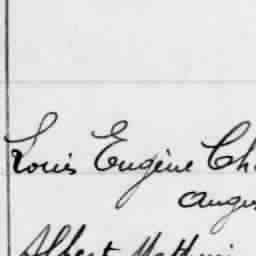 Louis Eugène Ch
Augus
Albert Mathuri